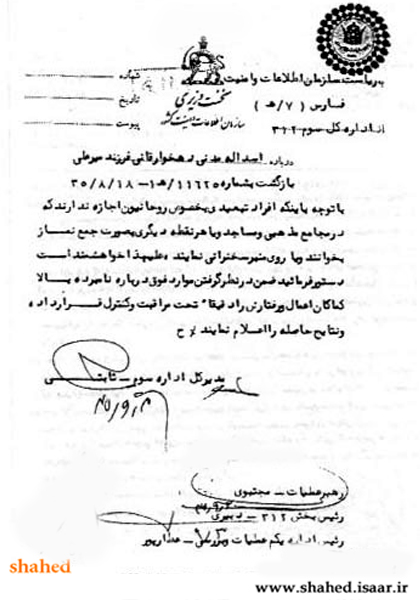 به ریاست سازمان اطلاعات و امنیت
شماره
فارس (۷/ه)
نخست وزیری
تاریخ
سازمان اطلاعات و امنیت کشور
از اداره کل سوم ۳۱۲
پیوست
درباره اسداله مدنی دهخوارقانی فرزند میرعلی
بازگشت بشماره ۱۱۶۲۵/ه۱-۳۵/۸/۱۸
با توجه باینکه افراد تبعیدی بخصوص روحانیون اجازه ندارند که
در مجامع مذهبی و مساجد و یا هر نقطه دیگری بصورت جمع نماز
بخوانند و یا روی منبر سخنرانی نمایند علیهذا خواهشمند است
دستور فرمائید ضمن در نظر گرفتن موارد فوق درباره نامبرده بالا
کماکان اعمال و رفتارش را دقیقا" تحت مراقبت و کنترل قرار داده
و نتایج حاصله را اعلام نمایند
مدیرکل اداره سوم ـ ثابتی
رهبر عملیات ـ مجتبوی
رئیس بخش ۳۱۲ ـ دبیری
رئیس اداره یکم عملیات و بررسی ـ عطارپور
shahed
www.shahed.isaar.ir